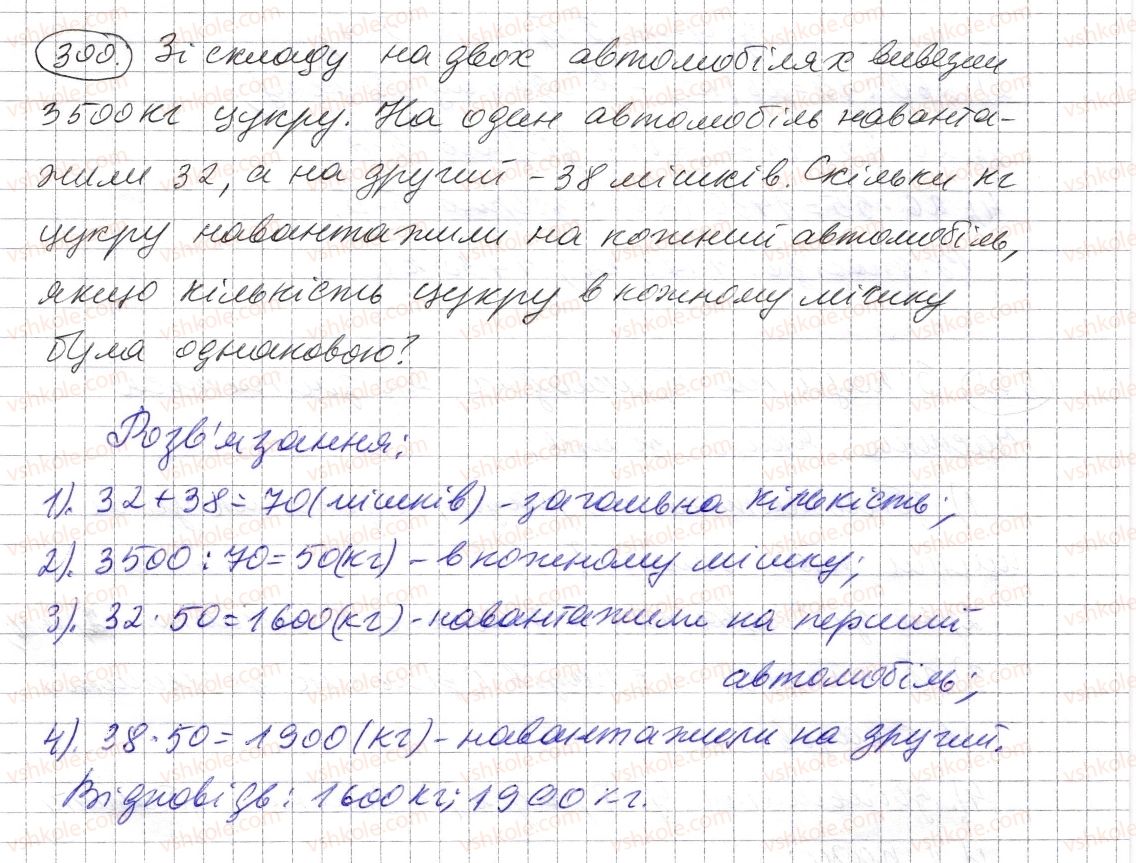 300. Зі складу на двох автомобілях вивезли
3500 кг цукру. На один автомобіль наванта-
жили 32, а на другий - 38 мішків. Скільки кг
цукру навантажили на кожний автомобіль,
якщо кількість цукру в кожному мішку
була однаковою?
Розв'язання:
1). 32 + 38 = 70 (мішків) - загальна кількість;
2). 3500 : 70 = 50 (кг) - в кожному мішку;
3). 32 · 50 = 1600 (кг) - навантажили на перший
автомобіль;
4). 38 · 50 = 1900 (кг) - навантажили на другий.
Відповідь: 1600 кг; 1900 кг.
vshkole.com